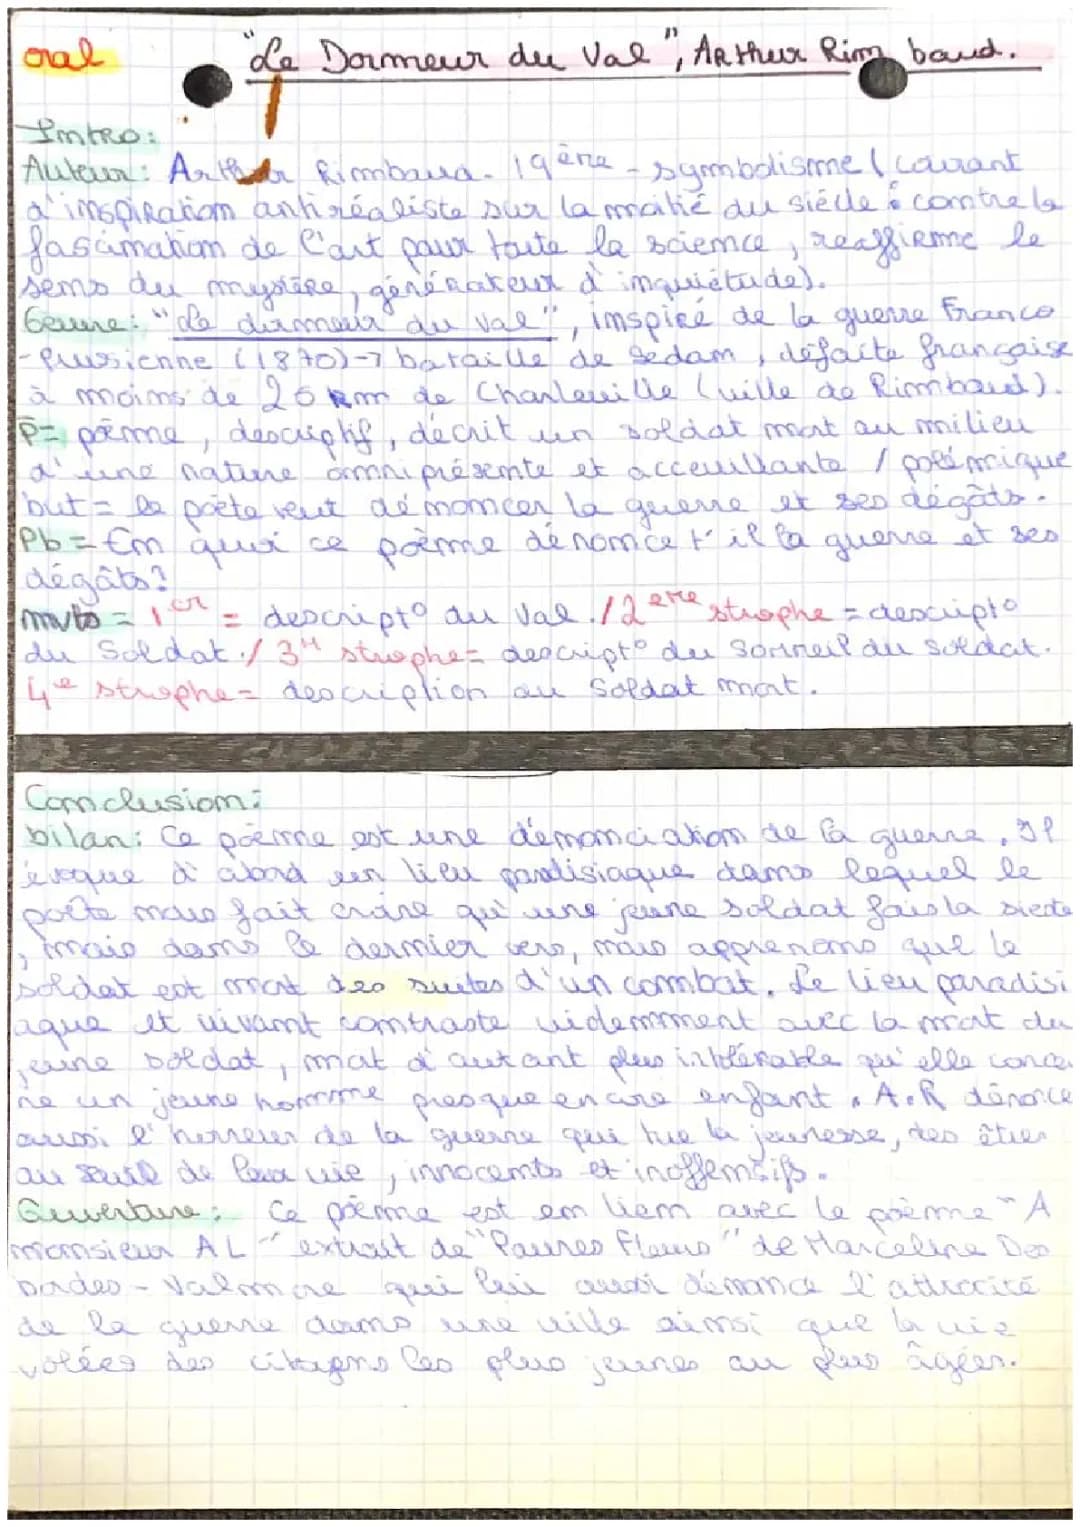 oral "Le Dormeur du Val", Arthur Rimbaud.
Intro:
Auteur: Arthur Rimbaud - 19ème - symbolisme (courant
d'inspiration antiréaliste sur la moitié du siècle : contre la
fascination de l'art pour toute la science, réaffirme le
sens du mystère, générateur d'inquiétude).
Genre: "Le dormeur du val", inspiré de la guerre Franco
-Prusienne (1870) → bataille de Sedam, défaite française
à moins de 20 km de Charleville (ville de Rimbaud).
P = poème, descriptif, décrit un soldat mort au milieu
d'une nature omniprésente et acceuillante / polémique
but = le poète veut démoncer la guerre et ses dégâts.
Pb = En quoi ce poème dénonce t'il la guerre et ses
dégâts?
mvts = 1er = descript° du Val. / 2ème strophe = descript°
du Soldat. / 3e strophe = descript° du sommeil du soldat.
4e strophe = description du Soldat mort.
Conclusion:
bilan: Ce poème est une dénonciation de la guerre. Il
évoque d'abord un lieu paradisiaque dans lequel le
poète nous fait croire qu'une jeune soldat fais la sieste
, mais dans le dernier vers, nous apprenons que le
soldat est mort des suites d'un combat. Le lieu paradisi
aque et vivant contraste videmment avec la mort du
jeune soldat, mort d'autant plus intolérable qu'elle concer
ne un jeune homme presque encore enfant. A.R dénonce
aussi l'horreur de la guerre qui tue la jeunesse, des êtres
au seuil de leur vie, innocents et inoffensifs.
Ouverture: Ce poème est en lien avec le poème "A
monsieur A L" extrait de "Pauvres Fleurs" de Marceline Des
bordes-Valmore qui lui aussi dénonce l'attrocité
de la guerre dans une ville ainsi que la vie
volées des citoyens les plus jeunes au plus âgées.